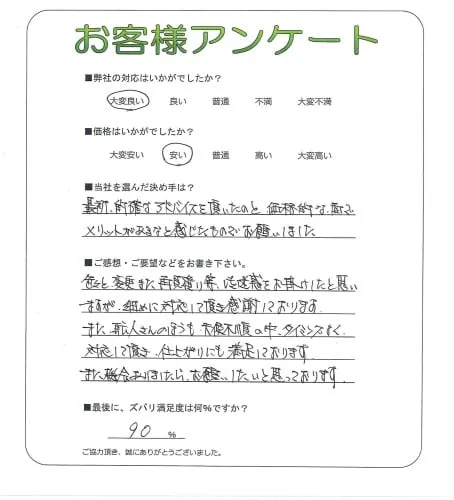 お客様アンケート
■弊社の対応はいかがでしたか？
大変良い 良い 普通 不満 大変不満
■価格はいかがでしたか？
大変安い 安い 普通 高い 大変高い
■当社を選んだ決め手は？
最初、的確なアドバイスを頂いたのと、価格的な面で
メリットがあるなと感じたものでお願いしました
■ご感想・ご要望などをお書き下さい。
色々と変更また再見積り等、ご迷惑をお掛けしたと思い
ますが、細めに対応して頂き感謝しております。
また、職人さんのほうも天候不順の中、タイミングよく
対応して頂き、仕上がりにも満足しております。
また機会ありましたら、お願いしたいと思っております。
■最後に、ズバリ満足度は何％ですか？
90 ％
ご協力頂き、誠にありがとうございました。